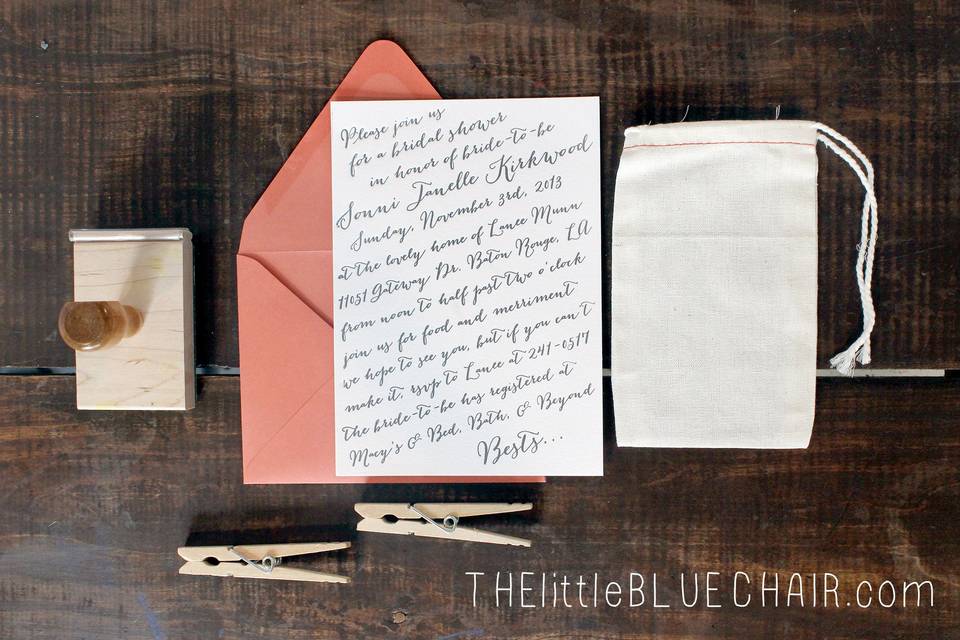 Please join us
for a bridal shower
in honor of bride-to-be
Sonni Janelle Kirkwood
Sunday, November 3rd, 2013
at the lovely home of Lanee Munn
11051 Gateway Dr. Baton Rouge, LA
from noon to half past two o'clock
join us for food and merriment
we hope to see you, but if you can't
make it, rsvp to Lanee at 241-0517
the bride-to-be has registered at
Macy's & Bed, Bath, & Beyond
Bests...
THElittleBLUECHAIR.com